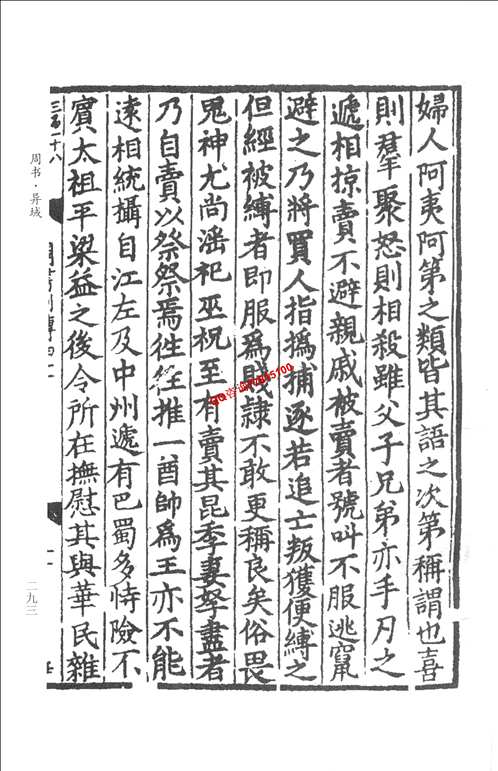 婦人阿夷阿第之類皆其語之次第稱謂也喜
則羣聚怒則相殺雖父子兄弟亦手刃之
遞相掠賣不避親戚被賣者號叫不服逃竄
避之乃將買人指撝捕逐若追亡叛獲便縛之
但經被縛者即服為賤隷不敢更稱良矣俗畏
鬼神尤尚滛祀巫祝至有賣其昆季妻孥盡者
乃自賣以祭祭焉徃徃推一酋帥為王亦不能
遠相統攝自江左及中州遞有巴蜀多恃險不
賓太祖平梁益之後令所在撫慰其與華民雜
三百十八
周书·异域
二九三